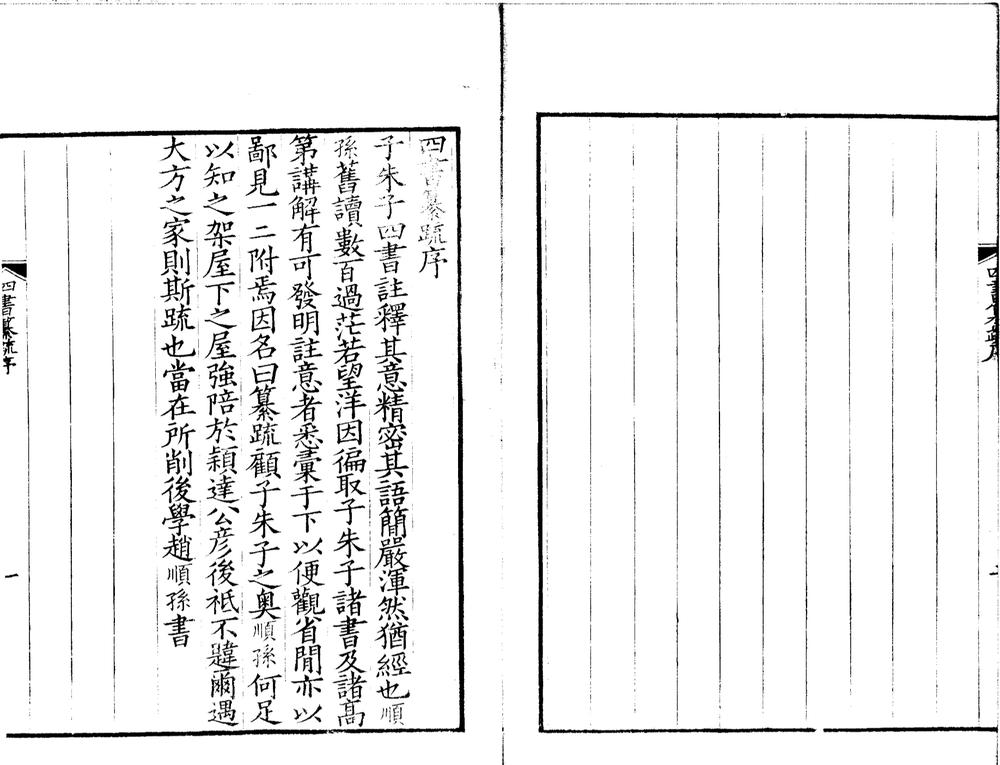 四書纂疏序
子朱子四書註釋其意精密其語簡嚴渾然猶經也順
孫舊讀數百過茫若望洋因徧取子朱子諸書及諸高
第講解有可發明註意者悉彙于下以便觀省閒亦以
鄙見一二附焉因名曰纂疏顧子朱子之奧順孫何足
以知之架屋下之屋強陪於穎達公彥後祇不韙爾遇
大方之家則斯疏也當在所削後學趙順孫書
四書纂疏序
一